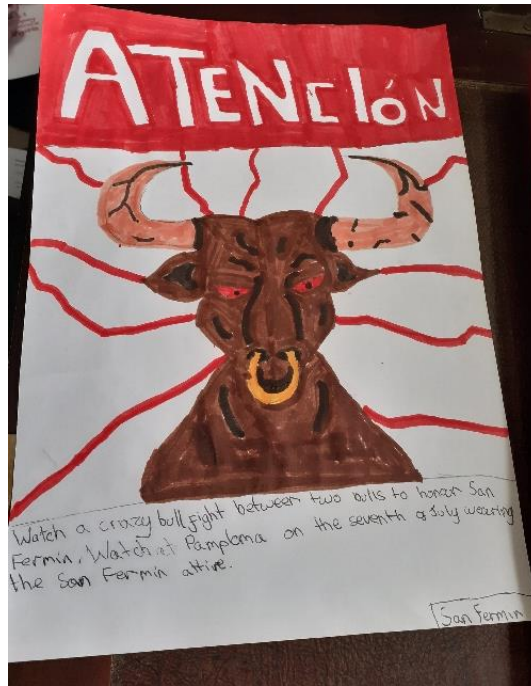 ATENCIÓN
Watch a crazy bull fight between two bulls to honour San
Fermin. Watch at Pamplona on the seventh of July wearing
the San Fermin attire.
San Fermin